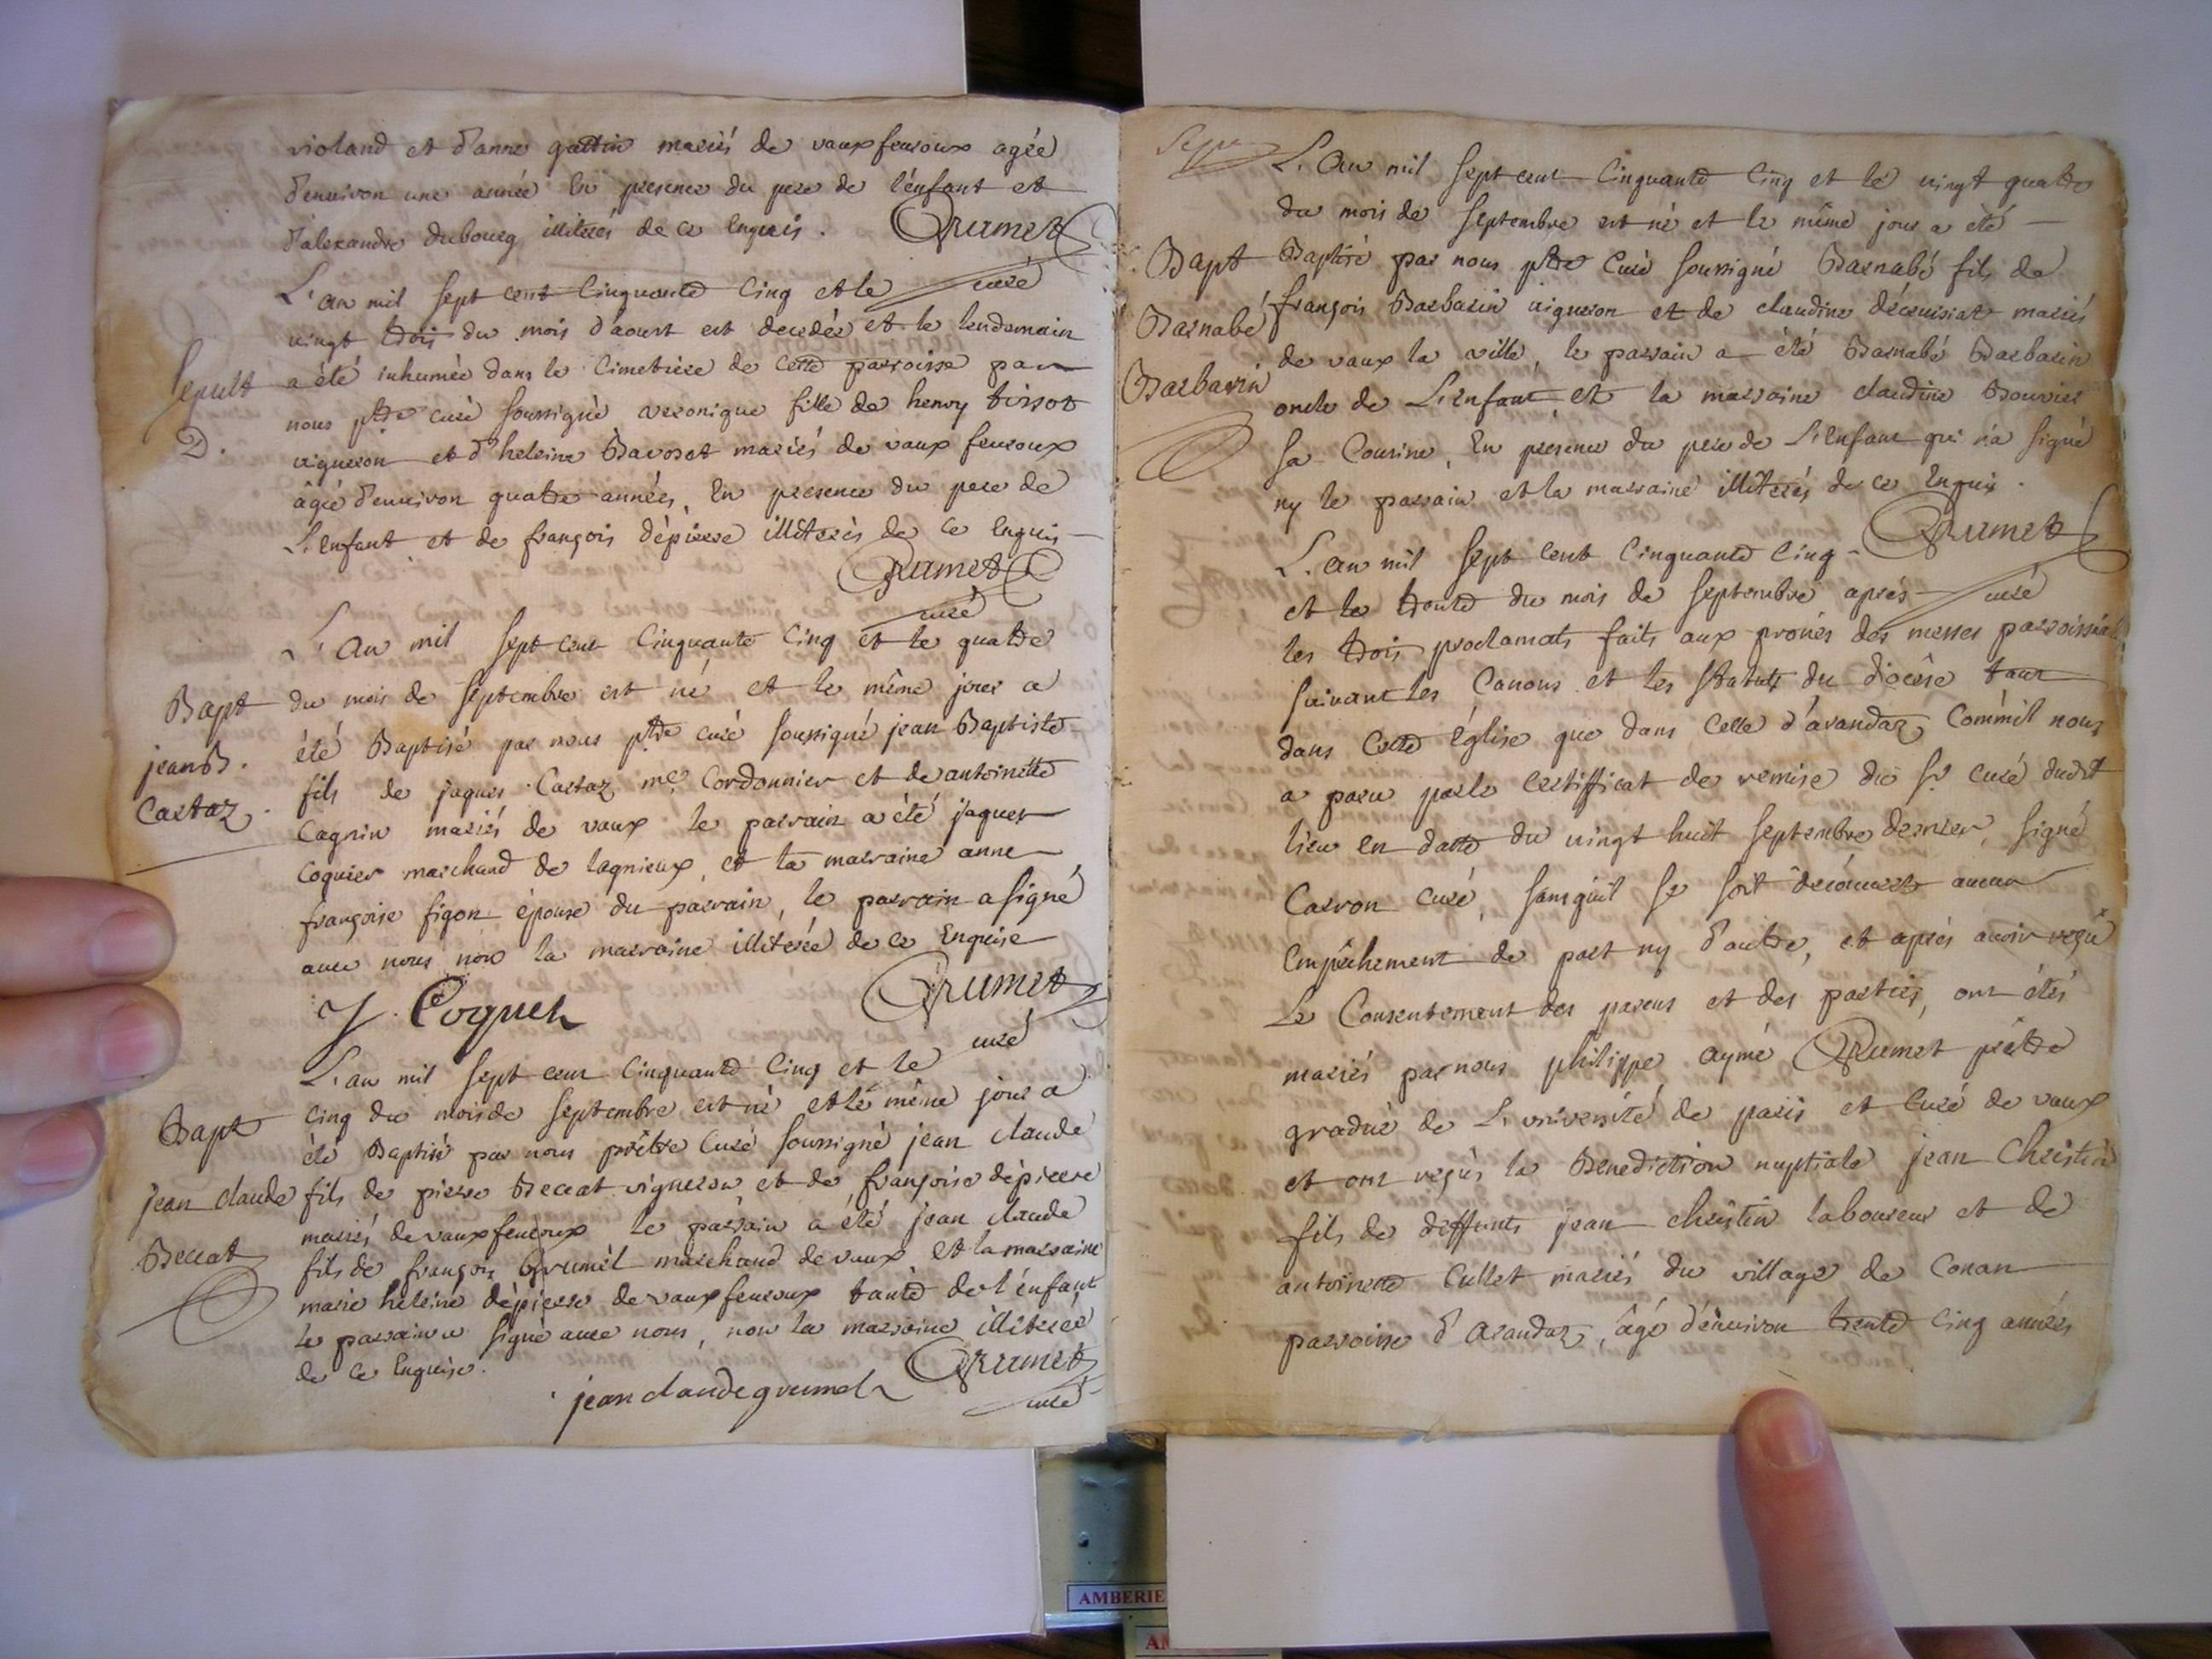 violand et d'anne gottin mariés de vaux fevroux agée
d'environ une année En presence du pere de l'enfant et
d'alexandre dubourg illiterés de ce Enquis. Grumet
curé
L'an mil sept cent Cinquante Cinq et le
vingt trois du mois d'aoust est decedée et le lendemain
Sepult a été inhumée dans le Cimetiere de cette parroisse par
nous ptre curé soussigné veronique fille de henry tissot
D. vigneron et d'heleine Bavoset mariés de vaux fevroux
âgée d'environ quatre années, En presence du pere de
L'enfant et de françois dépierre illiterés de ce Enquis
Grumet
curé
L'an mil sept cent Cinquante Cinq et le quatre
Bapt du mois de septembre est né et le même jour a
été Baptisé par nous ptre curé soussigné jean Baptiste
jean B. fils de jaques Cartaz me Cordonnier et de antoinette
Cartaz. Cagnin mariés de vaux le parrain a été jaques
Coquier marchand de lagnieux, et la marraine anne
françoise figon épouse du parrain, le parrain a signé
avec nous non la marraine illiterée de ce Enquise
J. Coquier Grumet
curé
L'an mil sept cent Cinquante Cinq et le
Bapt cinq du mois de septembre est né et le même jour a
été Baptisé par nous prêtre Curé soussigné jean claude
jean claude fils de pierre Beccat vigneron et de françoise dépierre
mariés de vaux fevroux le parrain a été jean claude
Beccat fils de françois Grumel marchand de vaux et la marraine
marie heleine dépierre de vaux fevroux tante de l'énfant
le parrain a signé avec nous, non la marraine illiterée
de ce Enquise. Grumet
jean claude grumel curé
Sepu
L'an mil sept cent Cinquante Cinq et le vingt quatre
du mois de septembre est né et le même jour a été
Bapt Baptisé par nous ptre Curé soussigné Barnabé fils de
Barnabé françois Barbarin vigneron et de claudine décruisiat mariés
de vaux la ville, le parrain a été Barnabé Barbarin
Barbarin oncle de L'enfant et la marraine claudine Bouvier
sa Cousine, En presence du pere de L'Enfant qui n'a signé
ny le parrain et la marraine illiterés de ce Enquis.
Grumet
L'an mil sept cent Cinquante Cinq
curé
et le trente du mois de septembre aprés
les trois proclamats faits aux prônes des messes parroissial
suivant les Canons et les statuts du diocêse tant
dans Cette Église que dans Celle d'arandaz, Commil nous
a paru par le certifficat de remise du sr curé dudit
lieu en datte du vingt huit septembre dernier, signé
Carron curé, sans qu'il se soit découvert aucun
Empêchement de part ny d'autre, et aprés avoir reçu
Le Consentement des parens et des parties, ont étés
mariés par nous philippe aymé Grumet prêtre
gradué de L'université de paris et Curé de vaux
et ont reçus la Benediction nuptiale jean Christin
fils de deffunts jean christin laboureur et de
antoinette Cullet mariés du village de Conan
parroisse d'arandaz, âgé d'environ trente Cinq années
AMBERIE